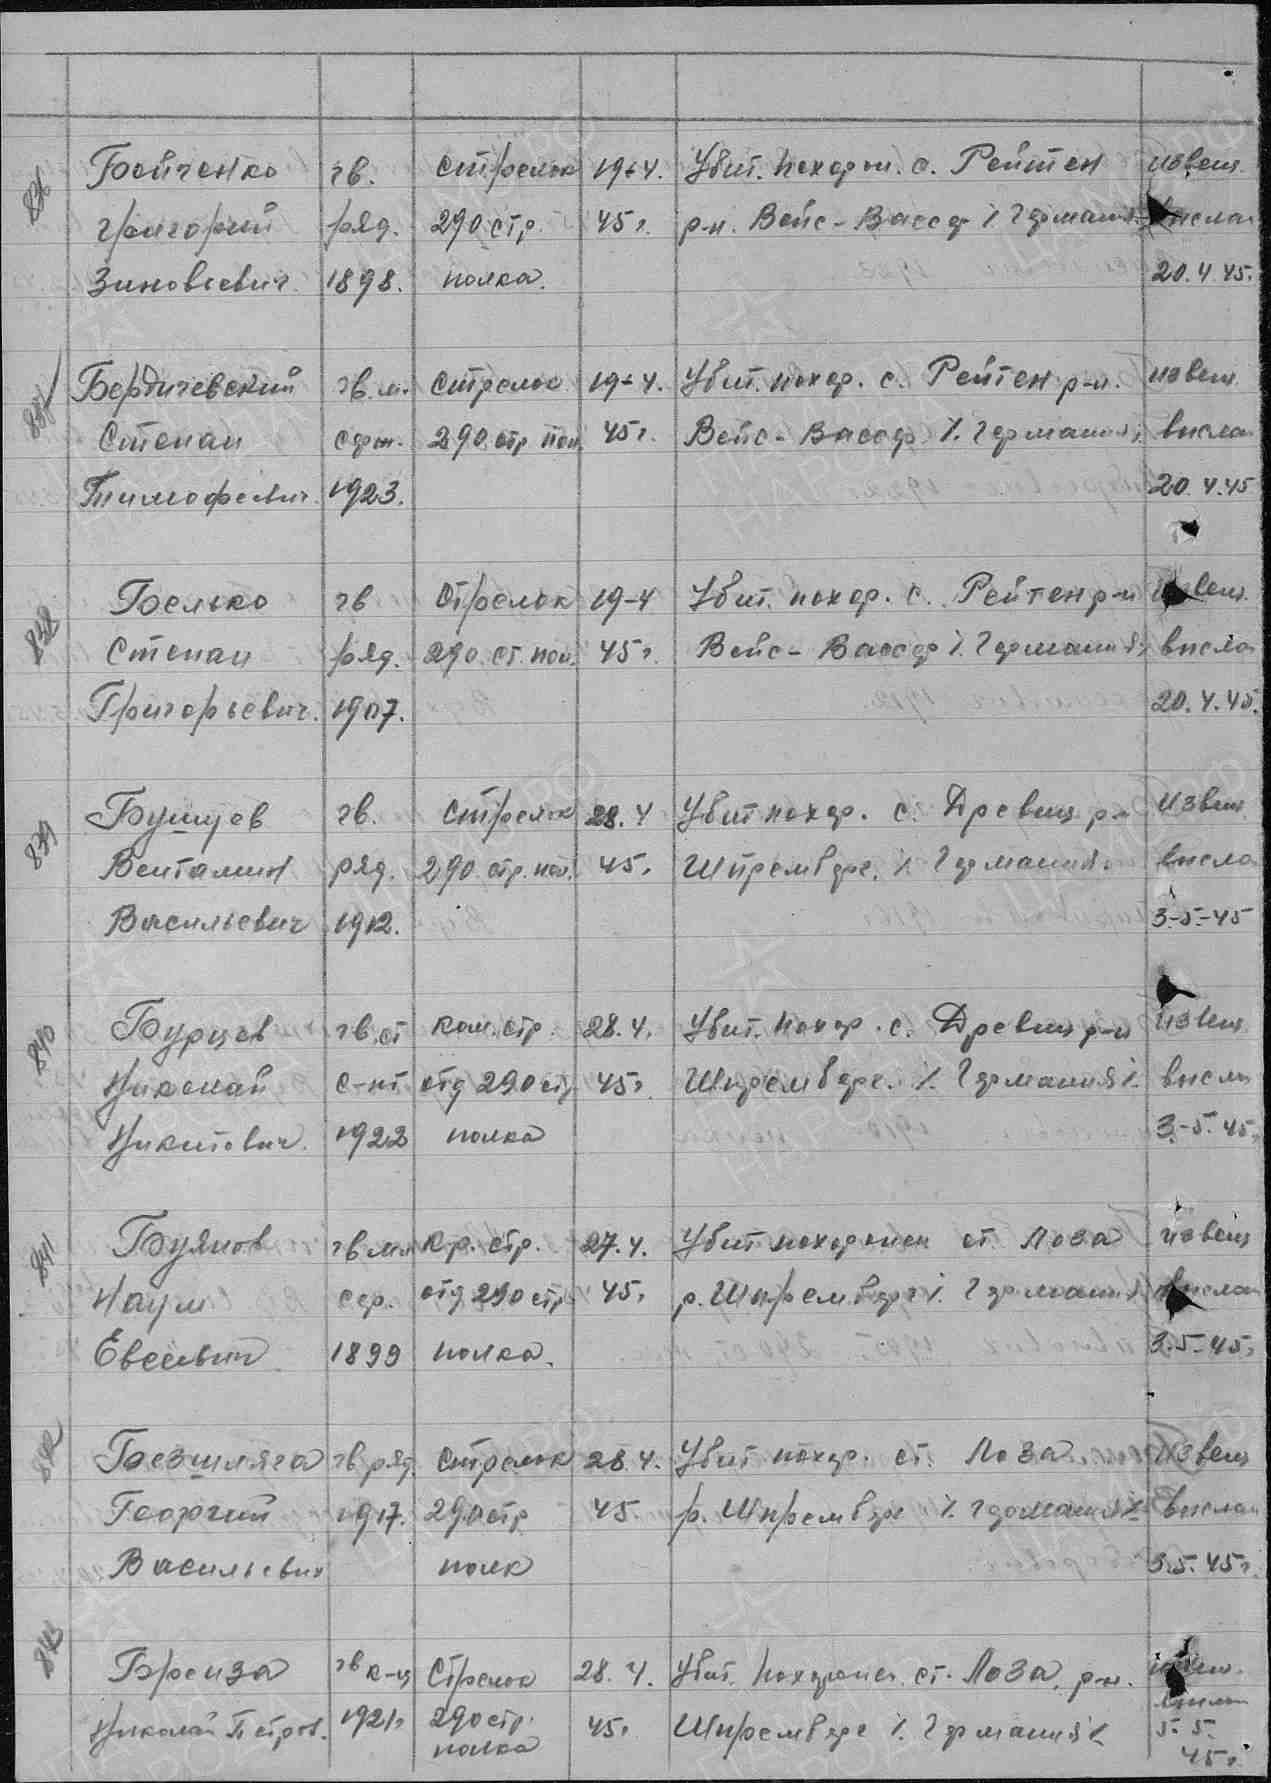 836 Бойченко гв. стрелок 19-4. Убит. похорон. с. Рейтен извещ.
Григорий ряд. 290 стр. 45г. р-н. Вейс-Вассер /. Германия. выслан
Зиновьевич. 1898. полка. 20.4.45.
837 Бердичевский гв. м. стрелок 19-4. Убит. похор. с. Рейтен р-н. извещ
Степан серж. 290 стр. пол. 45г. Вейс-Вассер /. Германия, выслан
Тимофеевич. 1923. 20.4.45
838 Белько гв стрелок 19-4 Убит. похор. с. Рейтен р-н извещ.
Степан ряд. 290 ст. пол. 45г. Вейс-Вассер /. Германия, выслан
Григорьевич. 1907. 20.4.45.
839 гв. стрелок 28.4 Убит похор. с. Древиц р-н извещ
Вентамин ряд. 290 стр. пол. 45г. Шпремберг. /. Германия. высла
Васильевич 1912. 3-5-45
840 Бурцев гв. ст ком. стр. 28.4. Убит. похор. с. Древиц р-н извещ
Николай с-нт отд 290 стр 45г. Шпремберг. /. Германия /. высла
Никитович. 1922 полка 3-5.45г.
841 Буянов гв. мл кр. стр. 27.4. Убит похоронен ст Лоза извещ
Наум сер. отд 290 стр 45г р. Шпремберг /. Германия выслан
Евсеевич 1899 полка. 3.5.45г.
842 Безшляга гв ряд. стрелок 28.4. Убит похор. ст. Лоза извещ
Георгий 1917. 290 стр 45. р. Шпремберг /. Германия /. выслан
Васильевич полк 3.5.45г.
843 Бренза гв к-ц Стрелок 28.4. Убит. похоронен ст. Лоза, р-н. извещ.
Николай Петров. 1921г 290 стр. 45г Шпремберг /. Германия / выслан
полка 5.5.
45г.